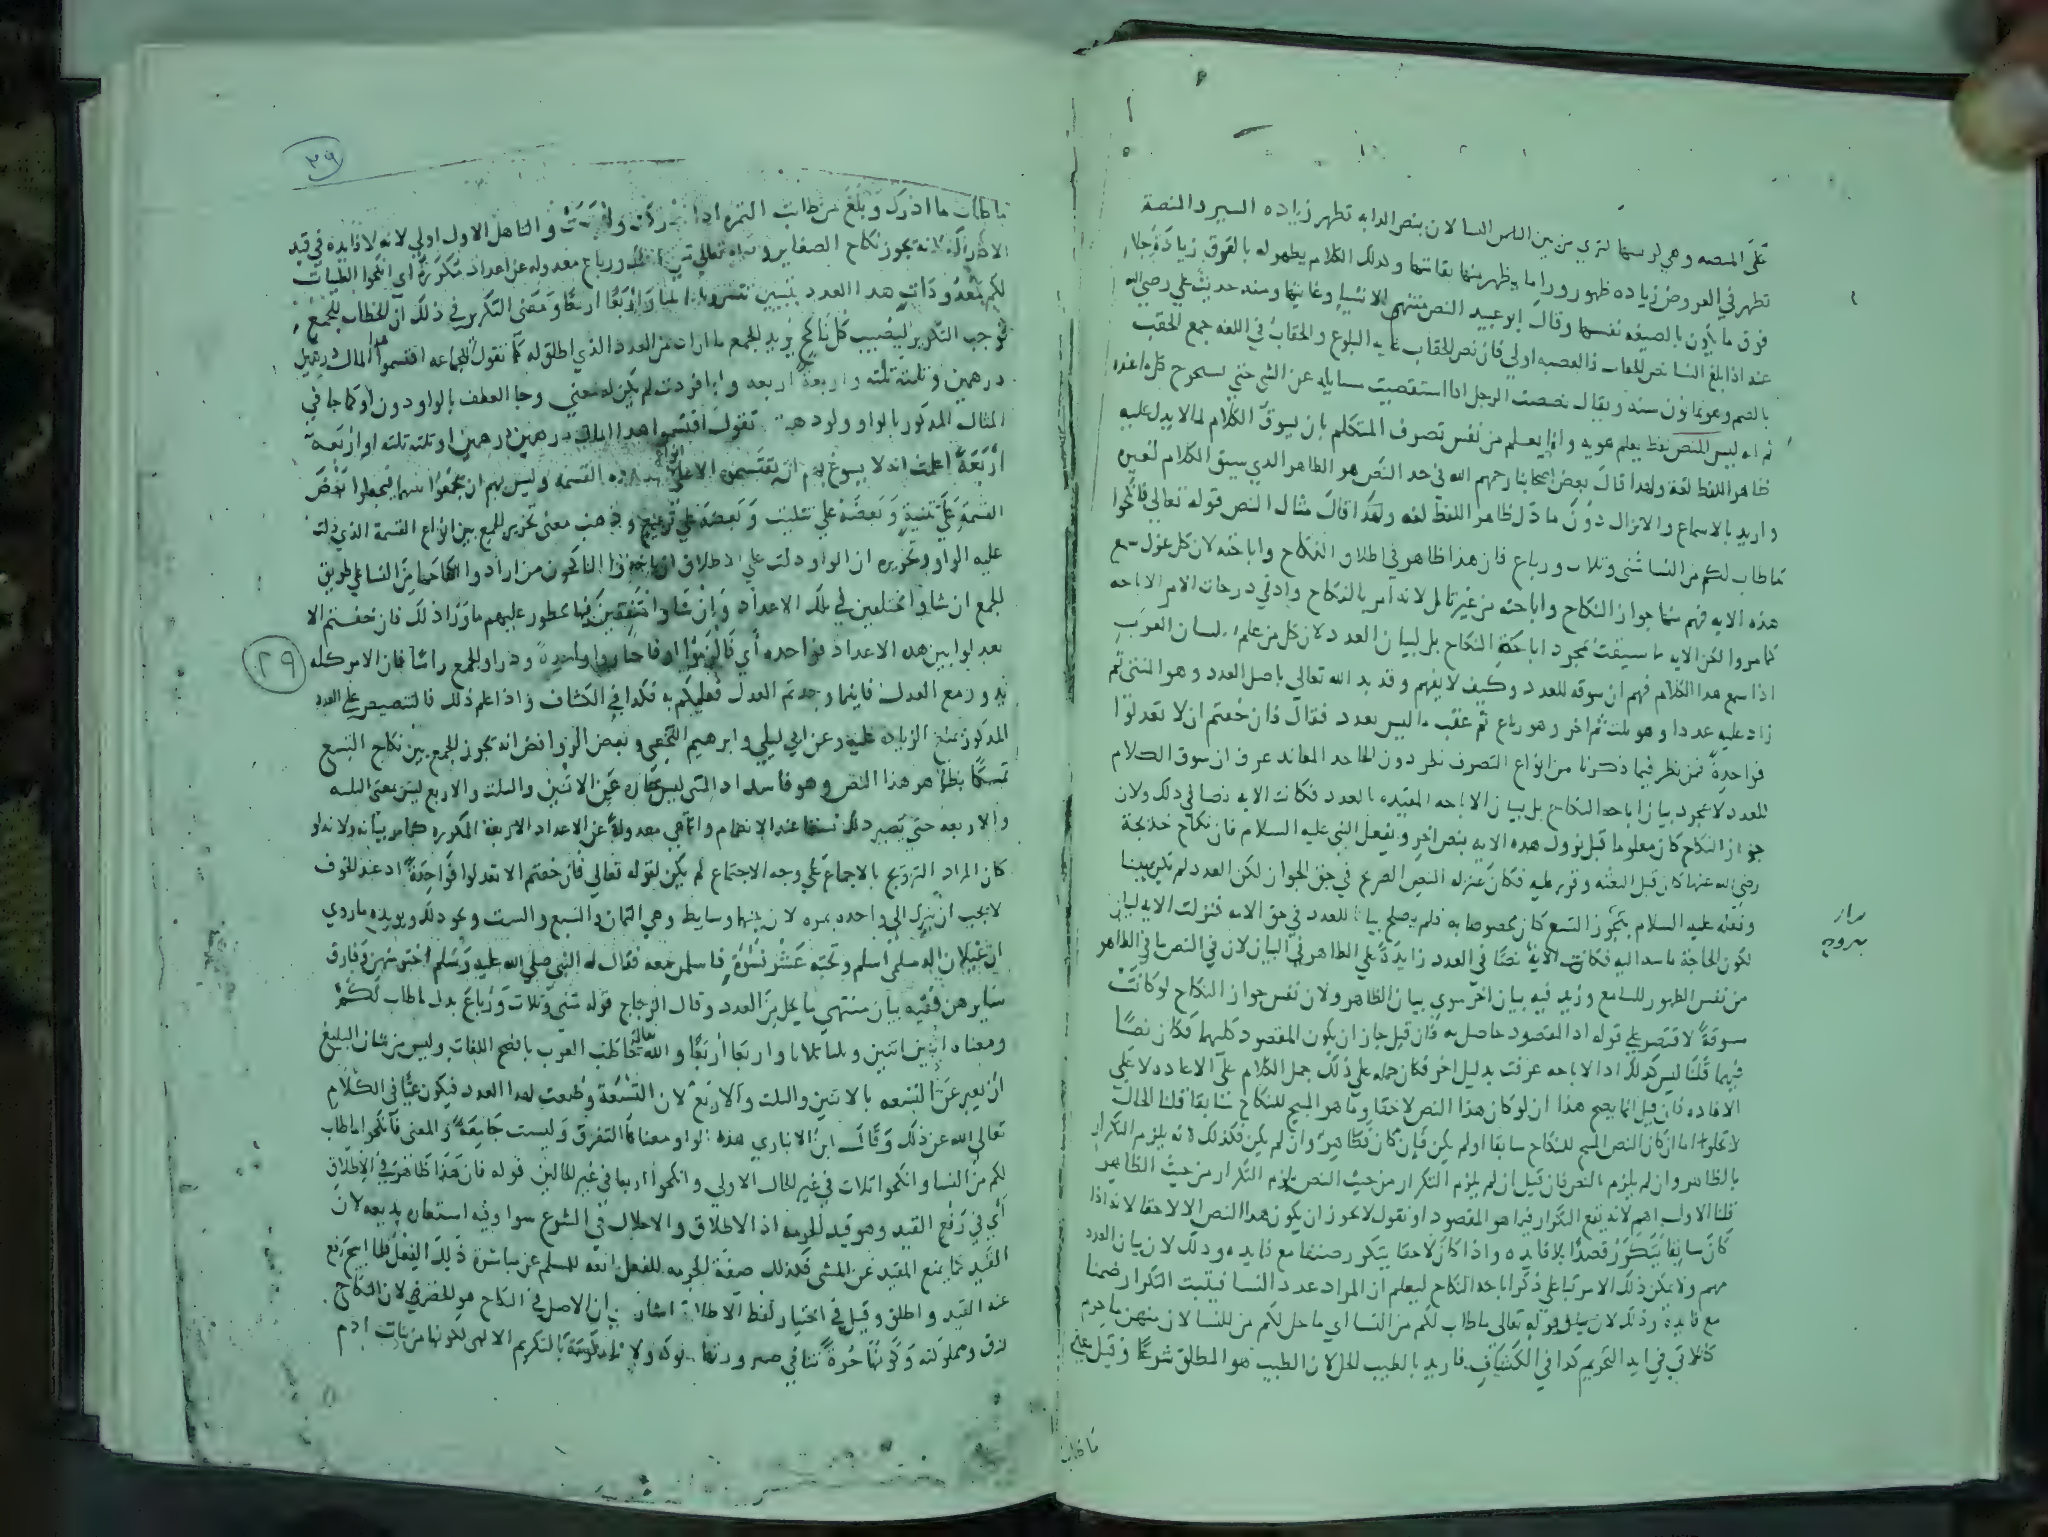 على المنصه وهي كرسيها لترى من بين النسا لان بنص الدابه تظهر زياده السير وبالمنصة
تظهر في العروض زياده ظهور وراما يظهر منها بقامتها وكذلك الكلام يظهوله بالفوق زيادة جلا
فوق ما يكون بالصيغه نفسها وقال ابو عبيد النص منتهى الاشيا وغايتها ومنه حديث علي رضي الله
عنه اذا بلغ النسا نص الحقاب فالعصبه اولى فان نص الحقاب غايه البلوغ والحقاب في اللغه جمع الحقب
بالضم وهو ثمانون سنه ويقال نصصت الرجل اذا استقصيت مسايله عن الشي حتى تستخرج كل ما عنده
ثم انه ليس للنص لفظ يعلم هو به وانما يعلم من نفس تصرف المتكلم بان يسوق الكلام لما لا يدل عليه
ظاهر اللفظ لغة ولهذا قال بعض اصحابنا رحمهم الله في حد النص هو الظاهر الذي سيق الكلام لغيره
واريد بالاسماع والانزال دون ما دل ظاهر اللفظ لغه ولهذا قال مثال النص قوله تعالى فانكحوا
ما طاب لكم من النسا مثنى وثلاث ورباع فان هذا ظاهر في اطلاق النكاح واباحته لان كل من سمع
هذه الايه فهم منها جواز النكاح واباحته من غير تامل لانه امر بالنكاح وادنى درجات الامر الاباحه
كما مر والكن الايه ما سيقت لمجرد اباحة النكاح بل لبيان العدد لان كل من علم لسان العرب
اذا سمع هذا الكلام فهم ان سوقه للعدد وكيف لا يفهم وقد بدا الله تعالى باصل العدد وهو المثنى ثم
زاد عليه عددا وهو ثلث ثم اخر وهو رباع ثم عقبه بما ليس بعدد فقال فان خفتم ان لا تعدلوا
فواحدة فمن نظر فيما ذكرنا من انواع التصرف نظر دون الجاحد المعاند عرف ان سوق الكلام
للعدد لا لمجرد بيان اباحه النكاح بل بيان الاباحه المقيده بالعدد فكانت الايه نصا في ذلك ولان
جواز النكاح كان معلوما قبل نزول هذه الايه بنص اخر وبفعل النبي عليه السلام فان نكاح خديجة
رضي الله عنها كان قبل البعثه وقرر عليه فكان بمنزله النص الصريح في حق الجواز لكن العدد لم يكن مبينا
وفعله عليه السلام بتجوز التسع كان مخصوصا به فلم يصلح بيانا للعدد في حق الامه فنزلت الايه لبيان
لكون الحاجة ماسه اليه فكانت الاية نصا في العدد زايدة على الظاهر في البيان لان في النص ما في الظاهر
من نفس الظهور للسامع وزيد فيه بيان اخر سوى بيان الظاهر ولان نفس جواز النكاح لو كانت
مسوقة لاقتصر على قوله اذ المقصود حاصل به فان قيل جاز ان يكون المقصود كليهما فكان نصا
فيهما قلنا ليس كذلك اذ الاباحه عرفت بدليل اخر فكان حمله على ذلك حمل الكلام على الاعاده لا على
الافاده فان قيل انما يصح هذا ان لو كان هذا النص لاحقا وما هو المبيح للنكاح سابقا قلنا الحال
لا تخلوا اما ان كان النص المبيح للنكاح سابقا اولم يكن فان كان فظاهر وان لم يكن فكذلك لانه يلزم التكرار
بالظاهر وان لم يلزم بالنص فان قيل ان لم يلزم التكرار من حيث النص يلزم التكرار من حيث الظاهر
قلنا الاول اهم لانه يقع التكرار فيما هو المقصود او نقول لا يجوز ان يكون هذا النص الا لاحقا لانه اذا
كان سابقا يتكرر قصدا بلا فايده واذا كان لاحقا يتكرر ضمنا مع فايده وذلك لان بيان العدد
مهم ولا يمكن ذلك الا مرتبا على ذكر اباحه النكاح ليعلم ان المراد عدد النسا فيثبت التكرار ضمنا
مع فايده وذلك لان قوله تعالى ما طاب لكم من النسا اي ما حل لكم من النسا لان منهن ما حرم
كاللاتي في ايه التحريم كذا في الكشاف فاريد بالطيب الحل لان الطيب هو المطلق شرعا وقيل
ما طاب
٣٩
ما طاب ما ادرك وبلغ من طابت التمره اذا ادركت والتاويل الاول اولى لانه لا فايده في قيد
الادراك لانه يجوز نكاح الصغاير وقوله تعالى مثنى وثلث ورباع معدوله عن اعداد مكررة اى انكحوا الطيبات
لكم معدودات هذا العدد ثنتين ثنتين وثلثا ثلثا واربعا اربعا ومعنى التكرير في ذلك ان الخطاب للجمع
فوجب التكرير ليصيب كل ناكح يريد الجمع ما اراد من العدد الذي اطلق له كما تقول للجماعه اقتسموا هذا المال درهمين
درهمين وثلثة ثلثه واربعة اربعه ولو افردت لم يكن له معنى وجا العطف بالواو دون او كما جا في
المثال المذكور بالواو ولو ذهبت تقول اقتسموا هذا المال درهمين درهمين او ثلثه ثلثه او اربعه
أربعة اعلمت انه لا يسوغ لهم ان يقتسموه الا على احد انواع هذه القسمه وليس لهم ان يجمعوا بينها فيجعلوا بعض
القسمة على تثنية وبعضه على تثليث وبعضه على تربيع وذهب معنى تجويز الجمع بين انواع القسمة الذي دلت
عليه الواو وتحريره ان الواو دلت على اطلاق ان ياخذ الناكحون من ارادوا نكاحها من النسا على طريق
الجمع ان شاوا مختلفين في تلك الاعداد وان شاوا متفقين فيها محظور عليهم ما ورا ذلك فان خفتم الا
تعدلوا بين هذه الاعداد فواحده أي فالزموا او فاختاروا واحدة وذروا الجمع راسا فان الامر كله
٢٩
يدور مع العدل فاينما وجدتم العدل فعليكم به هكذا في الكشاف واذا علم ذلك فالتنصيص على العدد
المذكور يمنع الزياده عليه وعن ابي ليلي وابرهيم النخعي وبعض الروافض انه يجوز الجمع بين نكاح التسع
تمسكا بظاهر هذا النص وهو فاسد اذ المثنى ليس عباره عن الاثنين والثلث والاربع ليس بمعنى الثلثه
والاربعه حتى يصير ذلك تسعا عند الانضمام وانما هي معدولة عن الاعداد الاربعة المكرره كما مر بيانه ولانه لو
كان المراد التزوج بالاجماع على وجه الاجتماع لم يكن لقوله تعالى فان خفتم الا تعدلوا فواحدة اذ عند الخوف
لا يجب ان ينزل الى واحده بمره لان بينهما وسايط وهي الثمان والسبع والست ونحو ذلك ويويده ما روي
ان غيلان بن سلمه اسلم وتحته عشر نسوة فاسلمن معه فقال له النبي صلى الله عليه وسلم اختر منهن وفارق
سايرهن ففيه بيان منتهى ما يحل من العدد وقال الزجاج قوله مثنى وثلاث ورباع بدل ما طاب لكم
ومعناه اثنين اثنين وثلثا ثلاثا واربعا أربعا والله تعالى خاطب العرب بافصح اللغات وليس من شان البليغ
ان يعبر عن التسعه بالاثنين والثلث والأربع لان التسعة وضعت لهذا العدد فيكون عيا في الكلام
تعالى الله عن ذلك وقال ابن الانباري هذه الواو معناها التفرق وليست جامعة والمعنى فانكحوا ما طاب
لكم من النسا وانكحوا ثلاث في غير الحال الاولى وانكحوا اربعا في غير الحالين قوله فان هذا ظاهر في الإطلاق
أي في رفع القيد وهو قيد الحرمه اذ الاطلاق والاحلال في الشرع سوا وفيه استعاره بديعه لان
القيد كما يمنع المقيد عن المشي فكذلك صفة الحرمه للفعل مانعه للمسلم عن مباشرة ذلك الفعل فلما ابيح رفع
عنه القيد واطلق وقيل في اختيار لفظ الاطلاق اشاره الى ان الاصل في النكاح هو الحظر لان النكاح
لرق ومملوكته وكونها حرة تنافي صيرورتها مملوكه ولانها مكرمة بالتكريم الالهى لكونها من بنات ادم